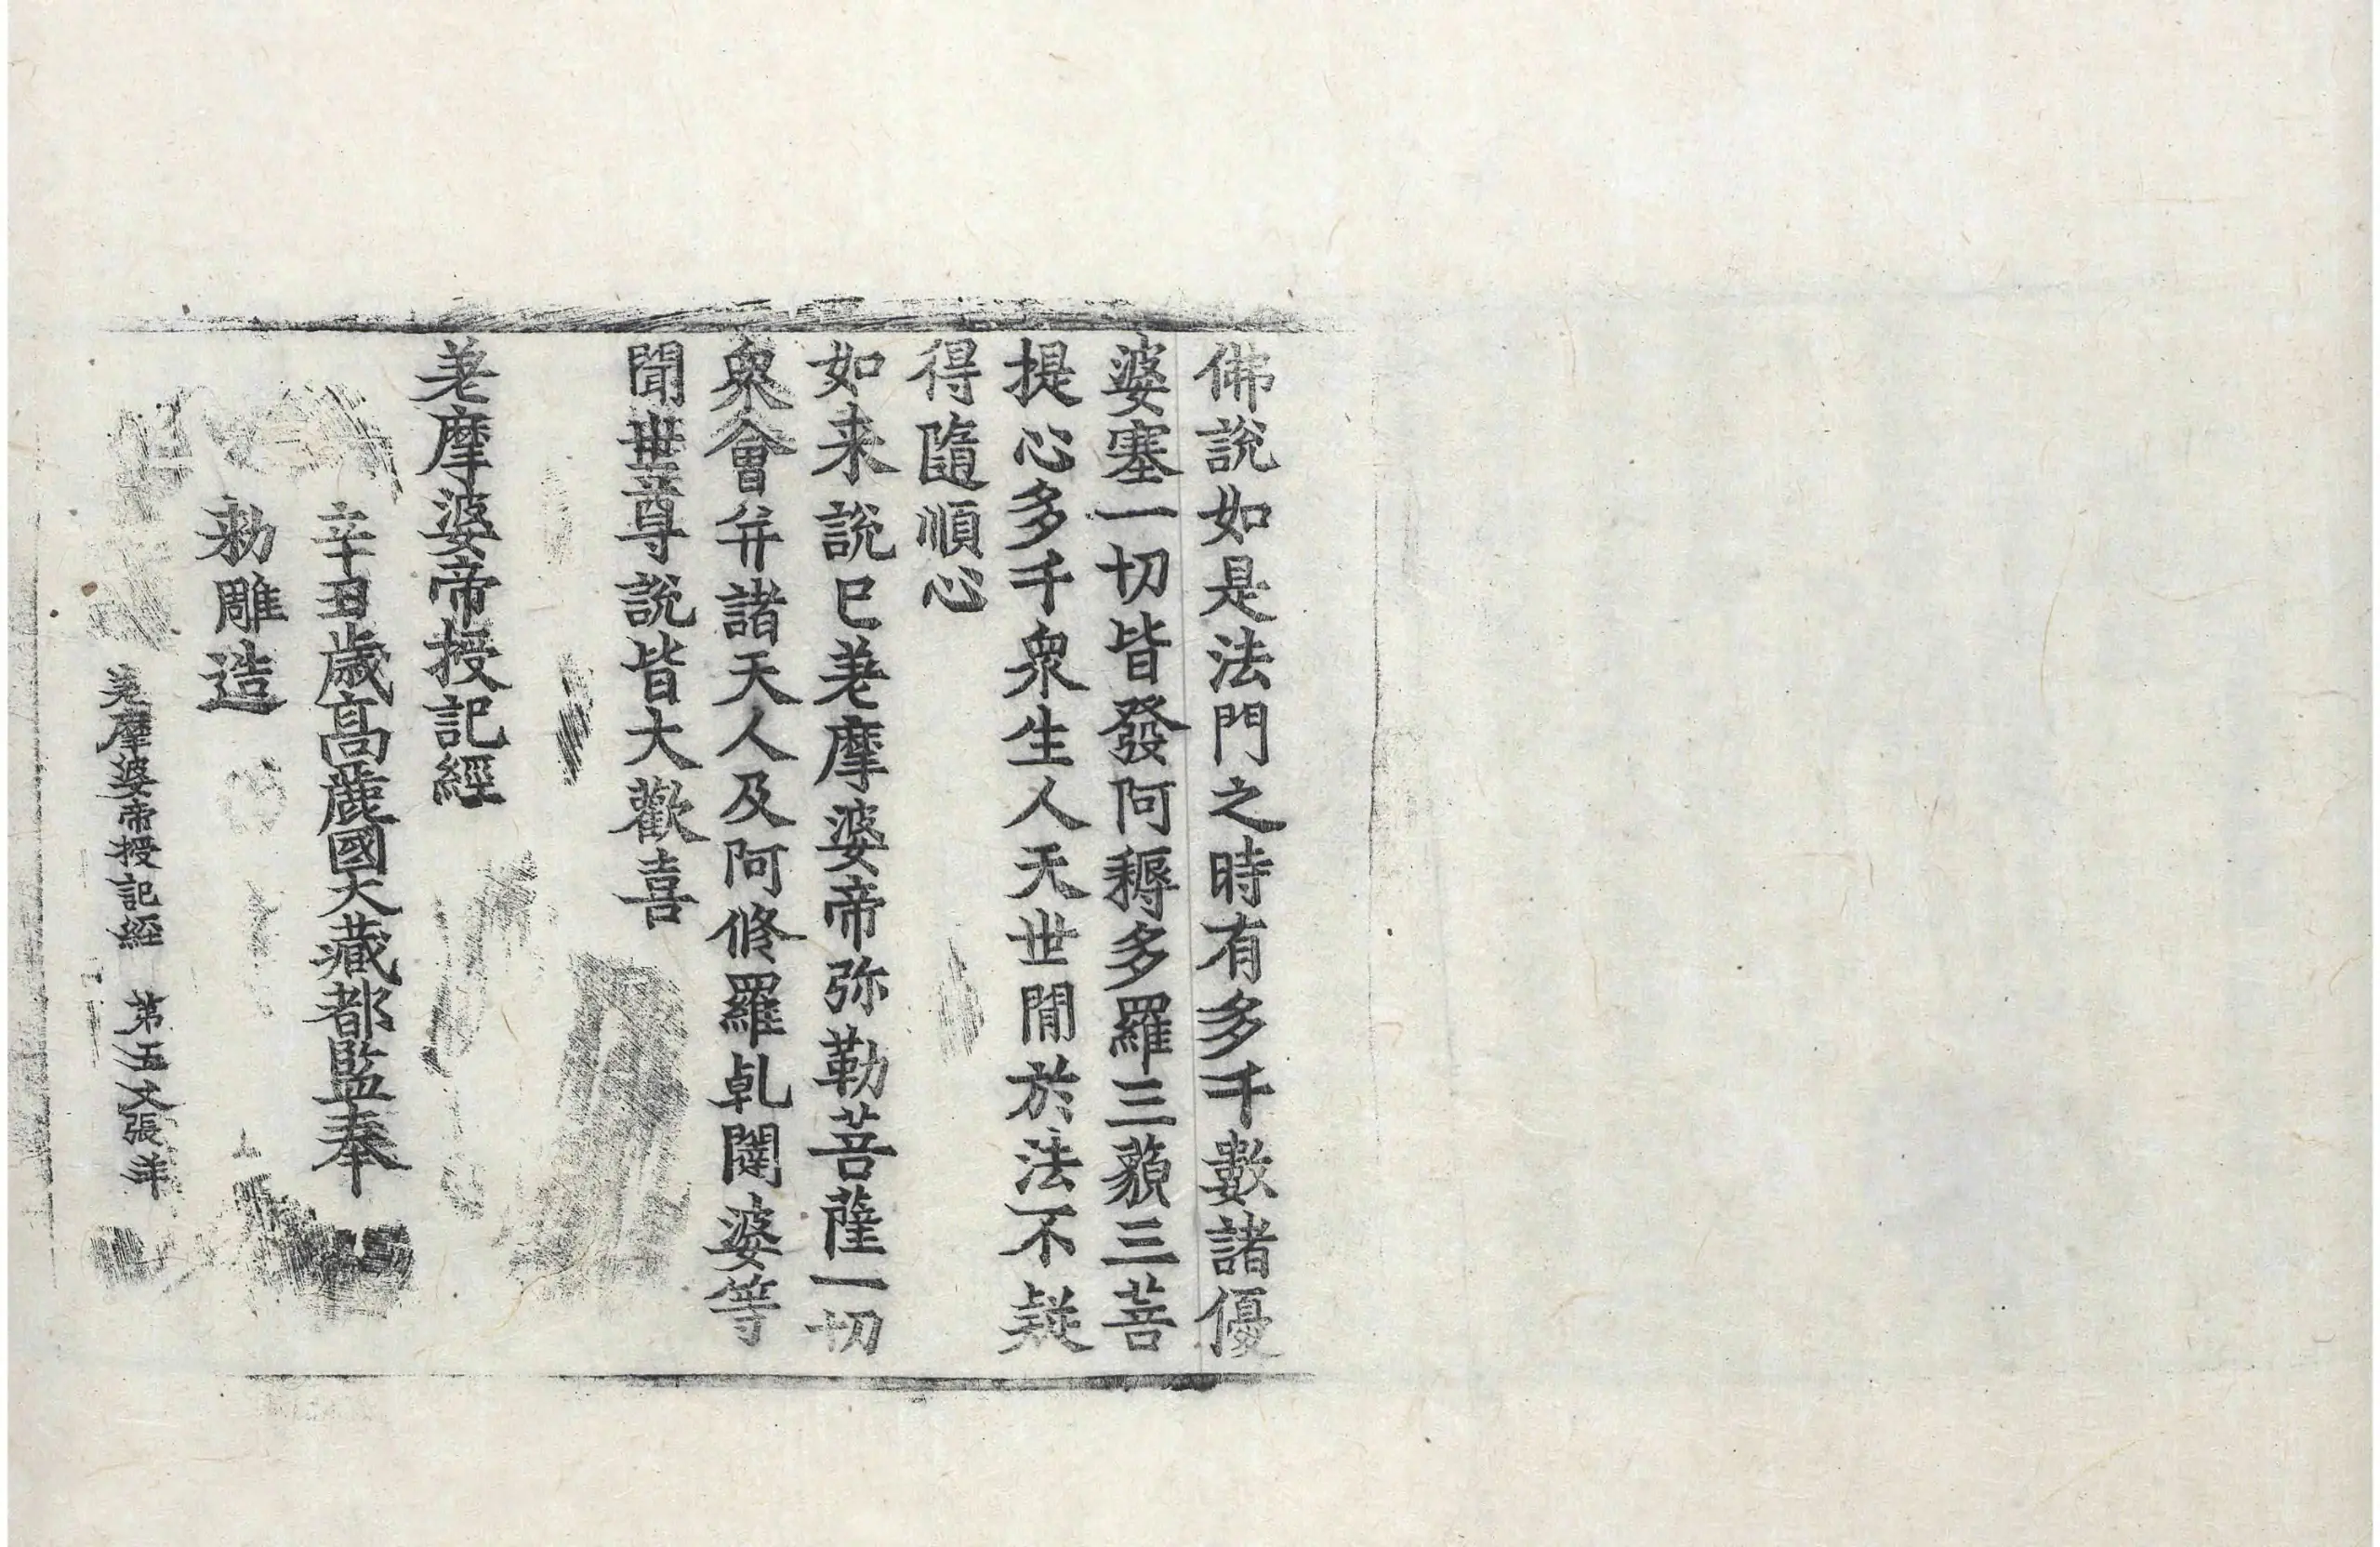 佛說如是法門之時有多千數諸優
婆塞一切皆發阿耨多羅三藐三菩
提心多千衆生人天世閒於法不疑
得隨順心
如来說已差摩婆帝弥勒菩薩一切
衆會并諸天人及阿脩羅乹闥婆等
聞世尊說皆大歡喜
差摩婆帝授記經
辛丑歳高麗國大藏都監奉
勑雕造
差摩婆帝授記經 第五丈張 羊